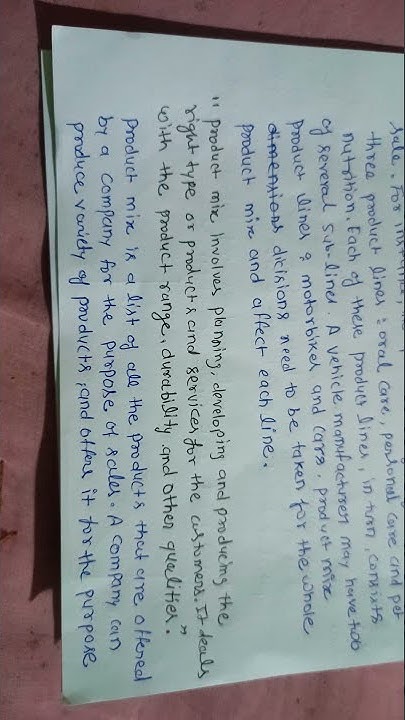 sale. For
three product lines : oral care, personal care and pet
nutrition. Each of these product lines, in turn, consists
of several sub-lines. A vehicle manufacturer may have two
product lines & motorbikes and cars. product mix
dimensions dicisions need to be taken for the whole
product mix and affect each line.
" product mix involves planning, developing and producing the
right type or products and services for the customers. It deals
with the product range, durability and other qualities. "
product mix is a list of all the products that are offered
by a company for the purpose of sales. A company can
produce variety of products, and offers it for the purpose